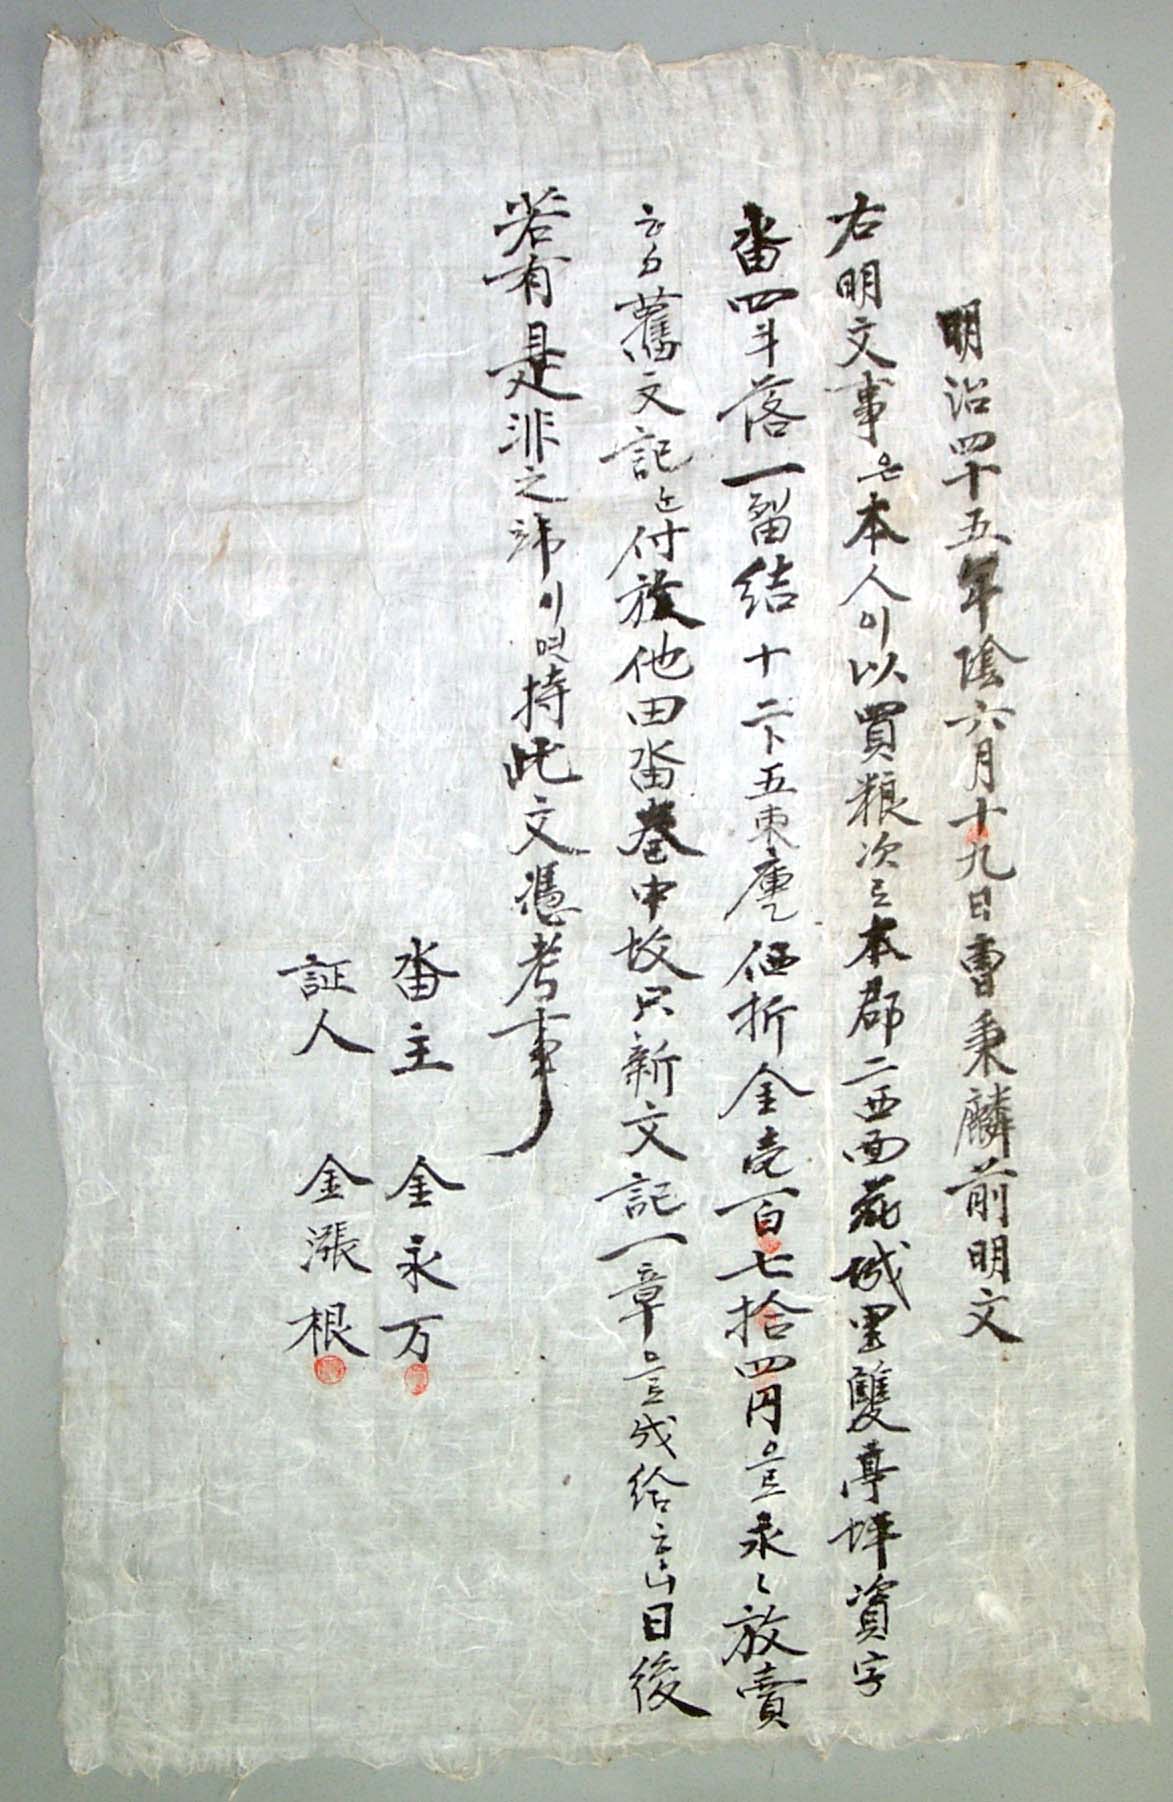 明治四十五年陰六月十九日曺秉麟前明文
右明文事은本人이以買粮次로本郡二西面花城里雙亭坪資字
畓四斗落一畓結十二卜五束㢱價折金壱百七拾四円으로永〻放賣
호며舊文記는付於他田畓巻中故只新文記一章으로成給호니日後
若有是非之端이면持此文憑考事
畓主 金永万
証人 金漲根